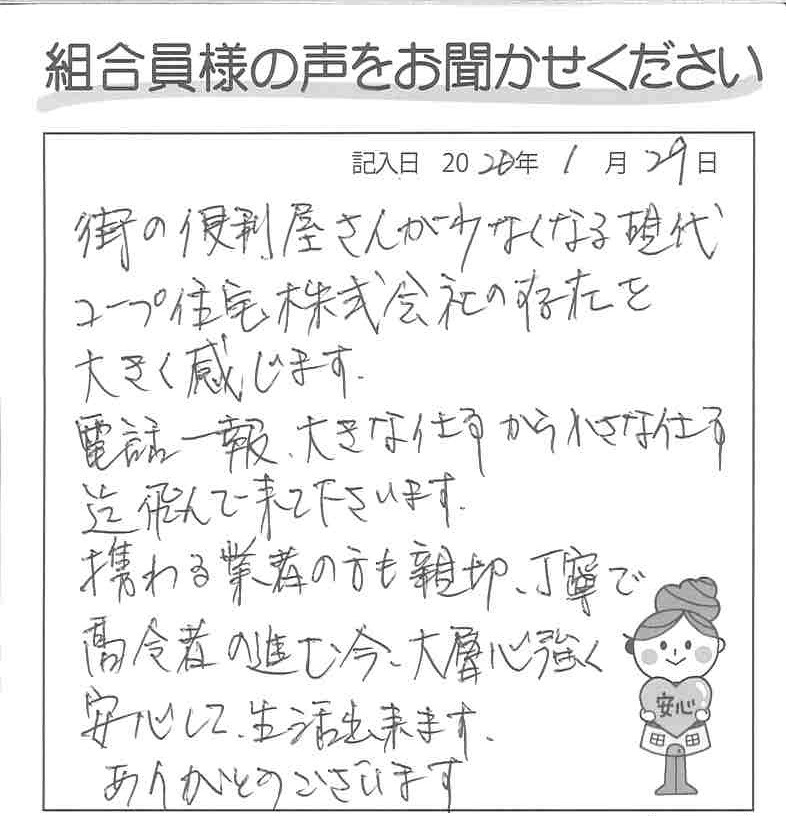 組合員様の声をお聞かせください
記入日 2026年 1月 29日
街の便利屋さんが少なくなる現代
コープ住宅株式会社の存在を
大きく感じます.
電話一報、大きな仕事から小さな仕事
迄飛んで来て下さいます.
携わる業者の方も親切、丁寧で
高令者の進む今、大層心強く
安心して、生活出来ます.
ありがとうございます
安心